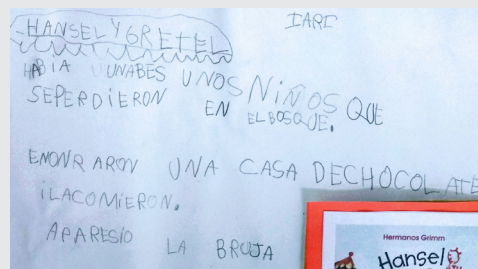 -HANSEL Y GRETEL
IARC
HABIA UNABES UNOS NIÑOS QUE
SEPERDIERON EN ELBOSQUE.
EMONRARON UNA CASA DECHOCOLATE
iLACOMiERON.
APARESIO LA BRUJA
Hermanos Grimm
Hansel